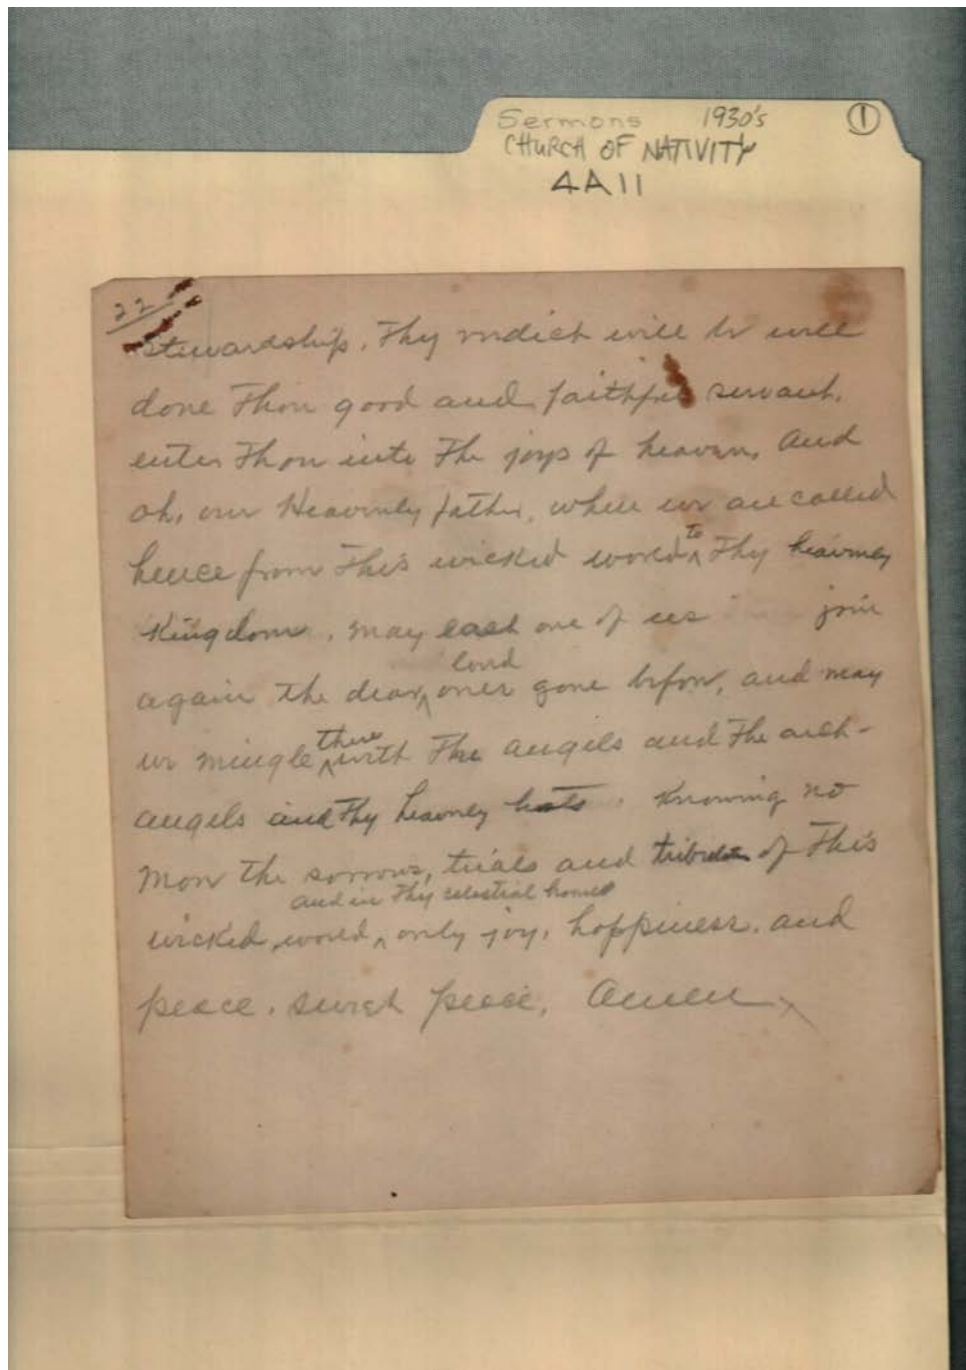 Sermons 1930's ①
CHURCH OF NATIVITY
4A11
22
stewardship. Thy verdict will be well
done Thou good and faithful servant.
enter Thou into The joys of heaven. And
oh, our Heavenly father, when we are called
hence from This wicked world to Thy heavnley
Kingdom, may each one of us join
again the dear loved ones gone before, and may
we mingle there with The angels and The arch-
angels and Thy heavnley hosts. Knowing no
more the sorrows, trials and of This
and in Thy celestial home
wicked world, only joy, happiness, and
peace. sweet peace. Amen